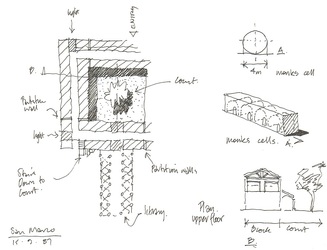 light
D.
Court.
Partition
wall
light
Stair
Down to
Court.
Partition walls
library.
Plan.
upper floor
San Marco
A.
4m
monks cell
monks cells.
A.
Block
Court
B.